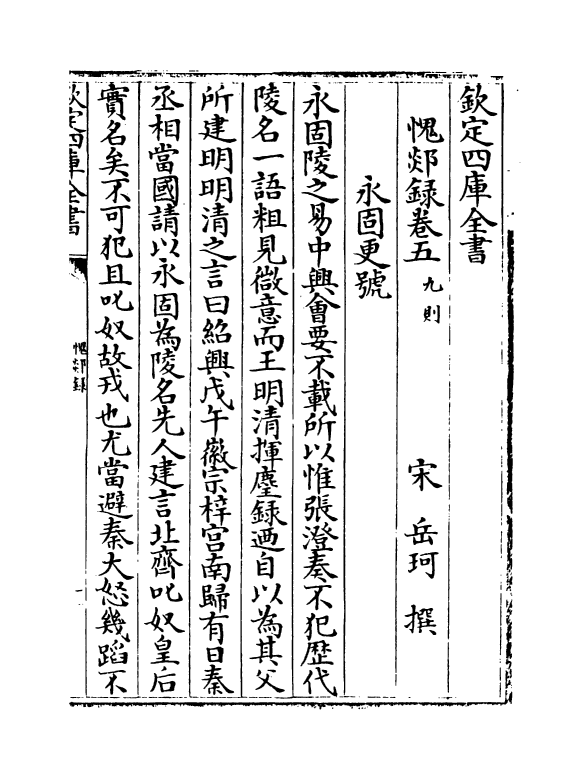 欽定四庫全書
愧郯録卷五 九則
宋 岳珂 撰
永固更號
永固陵之易中興會要不載所以惟張澄奏不犯歷代
陵名一語粗見微意而王明清揮麈録迺自以為其父
所建明明清之言曰紹興戊午徽宗梓宫南歸有日秦
丞相當國請以永固為陵名先人建言北齊叱奴皇后
實名矣不可犯且叱奴故戎也尤當避秦大怒幾蹈不
欽定四庫全書
愧郯録